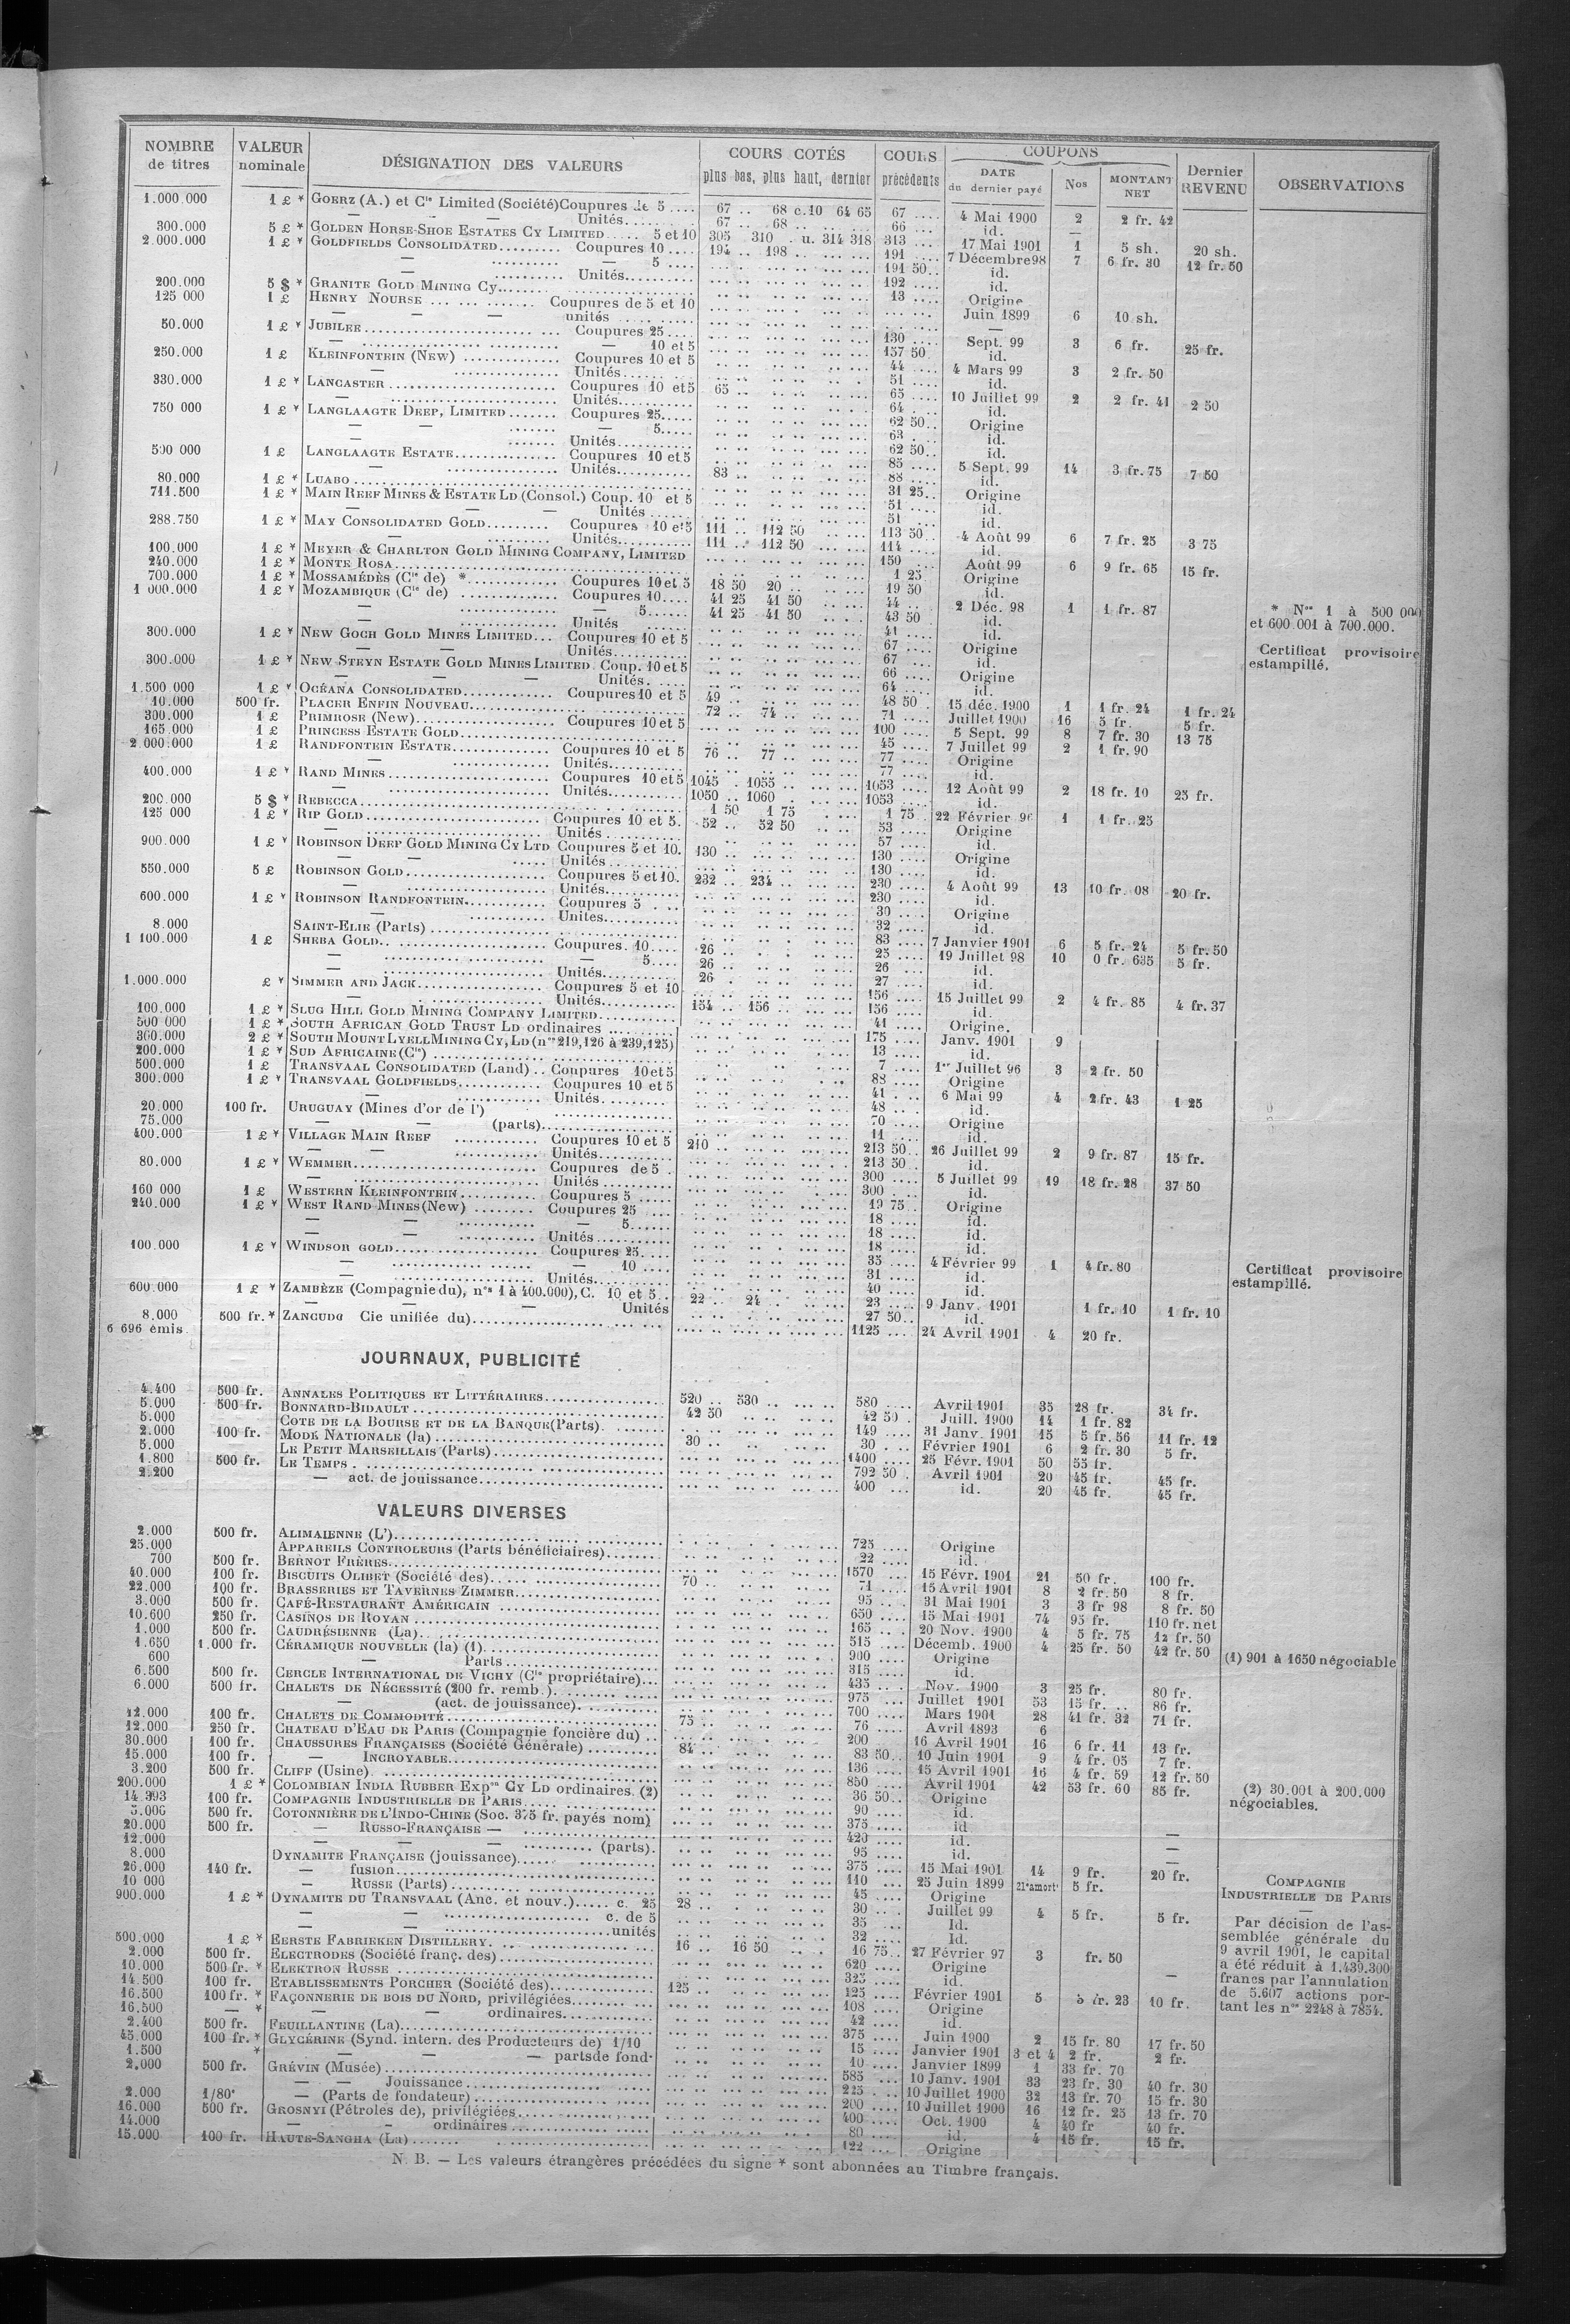 NOMBRE de titres | VALEUR nominale | DÉSIGNATION DES VALEURS | COURS COTÉS plus bas, plus haut, dernier | COURS précédents | COUPONS DATE du dernier payé | Nos | MONTANT NET | Dernier REVENU | OBSERVATIONS
1.000.000 1 £ * GOERZ (A.) et Cie Limited (Société) Coupures de 5 .... 67 .. 68 c.10 64 65 67 .... 4 Mai 1900 2 2 fr. 42
— — Unités 67 .. 68 .. 66 ... id. —
300.000 5 £ * GOLDEN HORSE-SHOE ESTATES CY LIMITED ..... 5 et 10 305 310 . u. 314 318 313 ... 17 Mai 1901 1 5 sh. 20 sh.
2.000.000 1 £ * GOLDFIELDS CONSOLIDATED ......... Coupures 10 .... 194 .. 198 .. 191 .... 7 Décembre 98 7 6 fr. 30 12 fr. 50
— — 5 .... 191 50.. id.
— Unités.......... 192 .... id.
200.000 5 $ * GRANITE GOLD MINING Cy....... 13 .... Origine
125 000 1 £ HENRY NOURSE ... Coupures de 5 et 10 Juin 1899 6 10 sh.
— — — unités —
50.000 1 £ * JUBILEE ......... Coupures 25.... 130 .... Sept. 99 3 6 fr. 25 fr.
— — 10 et 5 157 50 id.
250.000 1 £ KLEINFONTEIN (New) ......... Coupures 10 et 5 44 .... 4 Mars 99 3 2 fr. 50
— Unités 51 .... id.
330.000 1 £ * LANCASTER ......... Coupures 10 et 5 65 .. 65 .... 10 Juillet 99 2 2 fr. 41 2 50
— Unités.......... 64 .... id.
750 000 1 £ * LANGLAAGTE DEEP, LIMITED ....... Coupures 25..... 62 50.. Origine
— — — 5..... 63 .... id.
— Unités.......... 62 50.. id.
500 000 1 £ LANGLAAGTE ESTATE......... Coupures 10 et 5 85 .... 5 Sept. 99 14 3 fr. 75 7 50
— Unités.......... 83 .. 88 .... id.
80.000 1 £ * LUABO ......... 31 25.. Origine
711.500 1 £ * MAIN REEF MINES & ESTATE LD (Consol.) Coup. 10 et 5 51 .... id.
— — — Unités ...... 51 .... id.
288.750 1 £ * MAY CONSOLIDATED GOLD......... Coupures 10 et 5 111 .. 112 50 113 50.. 4 Août 99 6 7 fr. 25 3 75
— Unités.......... 111 .. 112 50 114 .... id.
100.000 1 £ * MEYER & CHARLTON GOLD MINING COMPANY, LIMITED 150 .... Août 99 6 9 fr. 65 15 fr.
240.000 1 £ * MONTE ROSA......... 1 25 Origine
700.000 1 £ * MOSSAMÉDÈS (Cie de) *......... Coupures 10 et 5 18 50 20 .. 19 50 id.
1 000.000 1 £ * MOZAMBIQUE (Cie de) ......... Coupures 10.... 41 25 41 50 44 .. 2 Déc. 98 1 1 fr. 87
— — 5...... 41 25 41 50 43 50 id.
— Unités 41 .... id.
* Nos 1 à 500 000
et 600 001 à 700.000.
300.000 1 £ * NEW GOCH GOLD MINES LIMITED... Coupures 10 et 5 67 .... Origine
— — Unités.......... 67 .... id.
Certificat provisoire
estampillé.
300.000 1 £ * NEW STEYN ESTATE GOLD MINES LIMITED. Coup. 10 et 5 66 .... Origine
— — — Unités. .... 64 .... id.
1.500 000 1 £ * OCÉANA CONSOLIDATED......... Coupures 10 et 5 49 .. 48 50 . 15 déc. 1900 1 1 fr. 24 1 fr. 24
10.000 500 fr. PLACER ENFIN NOUVEAU......... 72 .. 74 .. 71 .... Juillet 1900 16 5 fr. 5 fr.
300.000 1 £ PRIMROSE (New)......... Coupures 10 et 5 100 .... 5 Sept. 99 8 7 fr. 30 13 75
165.000 1 £ PRINCESS ESTATE GOLD......... 45 .... 7 Juillet 99 2 1 fr. 90
2.000.000 1 £ RANDFONTEIN ESTATE......... Coupures 10 et 5 76 .. 77 .. 77 .... Origine
— Unités.......... 77 .... id.
400.000 1 £ * RAND MINES ......... Coupures 10 et 5 1045 . 1055 .. 1053 .... 12 Août 99 2 18 fr. 10 25 fr.
— Unités.......... 1050 .. 1060 . 1053 .... id.
200.000 5 $ * REBECCA......... 1 50 1 75 1 75 . 22 Février 96 1 1 fr. 25
125 000 1 £ * RIP GOLD......... Coupures 10 et 5. 52 .. 52 50 53 .... Origine
— Unités ......... 57 .... id.
900.000 1 £ * ROBINSON DEEP GOLD MINING CY LTD Coupures 5 et 10. 130 .. 130 .... Origine
— — Unités ......... 130 .... id.
550.000 5 £ ROBINSON GOLD......... Coupures 5 et 10. 232 .. 234 .. 230 .... 4 Août 99 13 10 fr. 08 20 fr.
— Unités.......... 230 .... id.
600.000 1 £ * ROBINSON RANDFONTEIN......... Coupures 5 . ... 30 .... Origine
— Unités.......... 32 .... id.
8.000 SAINT-ELIE (Parts) ......... 83 .... 7 Janvier 1901 6 5 fr. 24 5 fr. 50
1 100.000 1 £ SHEBA GOLD.. ......... Coupures. 10.... 26 .. 25 .... 19 Juillet 98 10 0 fr. 635 5 fr.
— — 5.... 26 .. 26 .... id.
— Unités.......... 26 . 27 .... id.
1.000.000 £ * SIMMER AND JACK......... Coupures 5 et 10 156 .... 15 Juillet 99 2 4 fr. 85 4 fr. 37
— Unités.......... 154 .. 156 .. 156 .... id.
100.000 1 £ * SLUG HILL GOLD MINING COMPANY LIMITED......... 41 .... Origine.
500 000 1 £ * SOUTH AFRICAN GOLD TRUST LD ordinaires ......... 175 .... Janv. 1901 9
300.000 2 £ * SOUTH MOUNT LYELL MINING CY, LD (nos 219,126 à 239,125) 13 .... id.
200.000 1 £ * SUD AFRICAINE (Cie) ......... 7 .... 1er Juillet 96 3 2 fr. 50
500.000 1 £ TRANSVAAL CONSOLIDATED (Land) .. Coupures 10 et 5 88 .... Origine
300.000 1 £ * TRANSVAAL GOLDFIELDS......... Coupures 10 et 5 41 .... 6 Mai 99 4 2 fr. 43 1 25
— Unités.......... 48 .... id.
20.000 100 fr. URUGUAY (Mines d'or de l') 70 .... Origine
75.000 — — (parts)......... 11 .... id.
400.000 1 £ * VILLAGE MAIN REEF ......... Coupures 10 et 5 210 .. 213 50.. 26 Juillet 99 2 9 fr. 87 15 fr.
— — Unités.......... 213 50.. id.
80.000 1 £ * WEMMER......... Coupures de 5 . 300 .... 5 Juillet 99 19 18 fr. 28 37 50
— Unités ......... 300 .... id.
160 000 1 £ WESTERN KLEINFONTEIN......... Coupures 5 ..... 19 75.. Origine
240.000 1 £ * WEST RAND MINES (New) ........ Coupures 25 .... 18 .... id.
— — — 5...... 18 .... id.
— — Unités ...... 18 .... id.
100.000 1 £ * WINDSOR GOLD......... Coupures 25. ... 35 .... 4 Février 99 1 4 fr. 80
— — 10 .... 31 .... id.
— Unités.......... 40 .... id.
Certificat provisoire
estampillé.
600.000 1 £ * ZAMBÈZE (Compagnie du), nos 1 à 400.000), C. 10 et 5.. 22 .. 24 .. 23 .... 9 Janv. 1901 1 fr. 10 1 fr. 10
— — — Unités 27 50.. id.
8.000 500 fr. * ZANCUDO Cie unifiée du)......... 1125 .... 24 Avril 1901 4 20 fr.
6 696 émis.
JOURNAUX, PUBLICITÉ
4.400 500 fr. ANNALES POLITIQUES ET LITTÉRAIRES......... 520 .. 530 .. 580 .... Avril 1901 35 28 fr. 34 fr.
5.000 500 fr. BONNARD-BIDAULT ......... 42 50 42 50 . Juill. 1900 14 1 fr. 82
5.000 COTE DE LA BOURSE ET DE LA BANQUE (Parts)......... 149 .... 31 Janv. 1901 15 5 fr. 56 11 fr. 12
2.000 100 fr. MODE NATIONALE (la) ......... 30 .. 30 .... Février 1901 6 2 fr. 30 5 fr.
5.000 LE PETIT MARSEILLAIS (Parts)......... 1400 .... 25 Févr. 1901 50 55 fr.
1.800 500 fr. LE TEMPS ......... 792 50 . Avril 1901 20 45 fr. 45 fr.
2.200 — act. de jouissance......... 400 ... id. 20 45 fr. 45 fr.
VALEURS DIVERSES
2.000 500 fr. ALIMAIENNE (L')......... 725 .... Origine
25.000 APPAREILS CONTROLEURS (Parts bénéficiaires)......... 22 .... id.
700 500 fr. BERNOT FRÈRES......... 1570 .... 15 Févr. 1901 21 50 fr. 100 fr.
40.000 100 fr. BISCUITS OLIBET (Société des)......... 70 .. 71 .... 15 Avril 1901 8 2 fr. 50 8 fr.
22.000 100 fr. BRASSERIES ET TAVERNES ZIMMER......... 95 .... 31 Mai 1901 3 3 fr 98 8 fr. 50
3.000 500 fr. CAFÉ-RESTAURANT AMÉRICAIN ......... 650 .... 15 Mai 1901 74 95 fr. 110 fr. net
10.600 250 fr. CASINOS DE ROYAN ......... 165 .... 20 Nov. 1900 4 5 fr. 75 12 fr. 50
1.000 500 fr. CAUDRÉSIENNE (La)......... 515 .... Décemb. 1900 4 25 fr. 50 42 fr. 50
1.650 1.000 fr. CÉRAMIQUE NOUVELLE (la) (1)......... 900 .... Origine (1) 901 à 1650 négociable
600 — Parts......... 315 .... id.
6.500 500 fr. CERCLE INTERNATIONAL DE VICHY (Cie propriétaire)... 435 .... Nov. 1900 3 25 fr. 80 fr.
6.000 500 fr. CHALETS DE NÉCESSITÉ (200 fr. remb.)......... 975 .... Juillet 1901 53 15 fr. .. 86 fr.
— (act. de jouissance)......... 700 .... Mars 1901 28 41 fr. 32 71 fr.
12.000 100 fr. CHALETS DE COMMODITÉ ......... 75 .. 76 .... Avril 1893 6
12.000 250 fr. CHATEAU D'EAU DE PARIS (Compagnie foncière du) .. 200 16 Avril 1901 16 6 fr. 11 13 fr.
30.000 100 fr. CHAUSSURES FRANÇAISES (Société Générale) ......... 84 .. 83 50.. 10 Juin 1901 9 4 fr. 05 7 fr.
15.000 100 fr. — INCROYABLE......... 136 .... 15 Avril 1901 16 4 fr. 59 12 fr. 50
3.200 500 fr. CLIFF (Usine)......... 850 .... Avril 1901 42 53 fr. 60 85 fr.
200.000 1 £ * COLOMBIAN INDIA RUBBER Expon CY LD ordinaires. (2) 36 50.. Origine
(2) 30.001 à 200.000
négociables.
14.393 100 fr. COMPAGNIE INDUSTRIELLE DE PARIS......... 90 .... id.
5.006 500 fr. COTONNIÈRE DE L'INDO-CHINE (Soc. 375 fr. payés nom) 375 .... id
20.000 500 fr. — RUSSO-FRANÇAISE — ......... 420 .... id. —
12.000 — — — (parts). 95 .... id. —
8.000 DYNAMITE FRANÇAISE (jouissance)......... 375 .... 15 Mai 1901 14 9 fr. 20 fr.
26.000 140 fr. — fusion......... 110 .... 25 Juin 1899 21e amort. 5 fr.
10 000 — RUSSE (Parts)......... 45 .... Origine
900.000 1 £ * DYNAMITE DU TRANSVAAL (Anc. et nouv.)..... c. 25 28 .. 30 .... Juillet 99 4 5 fr. 5 fr.
— — c. de 5 35 .... Id.
— — unités 32 .... Id.
500.000 1 £ * EERSTE FABRIEKEN DISTILLERY......... 16 .. 16 50 16 75.. 27 Février 97 3 fr. 50
2.000 500 fr. ELECTRODES (Société franç. des)......... 620 .... Origine
10.000 500 fr. * ELEKTRON RUSSE ......... 325 .... id. —
14.500 100 fr. ETABLISSEMENTS PORCHER (Société des)......... 125 .. 125 .... Février 1901 5 5 fr. 23 10 fr.
16.500 100 fr. * FAÇONNERIE DE BOIS DU NORD, privilégiées......... 108 .... Origine
16.500 — * — — ordinaires......... 42 .... id.
2.400 500 fr. FEUILLANTINE (La)......... 375 .... Juin 1900 2 15 fr. 80 17 fr. 50
45.000 100 fr. * GLYCÉRINE (Synd. intern. des Producteurs de) 1/10 15 .... Janvier 1901 3 et 4 2 fr. 2 fr.
1.500 * — — — parts de fondr 10 .... Janvier 1899 1 33 fr. 70
2.000 500 fr. GRÉVIN (Musée) ......... 585 .... 10 Janv. 1901 33 23 fr. 30 40 fr. 30
— — Jouissance ......... 225 .... 10 Juillet 1900 32 13 fr. 70 15 fr. 30
2.000 1/80e — (Parts de fondateur) ......... 200 .... 10 Juillet 1900 16 12 fr. 25 13 fr. 70
16.000 500 fr. GROSNYI (Pétroles de), privilégiées......... 400 .... Oct. 1900 4 40 fr 40 fr.
14.000 — — ordinaires ......... 80 .... id. 4 15 fr. 15 fr.
15.000 100 fr. HAUTE-SANGHA (La)......... 122 .... Origine
COMPAGNIE
INDUSTRIELLE DE PARIS
—
Par décision de l'as-
semblée générale du
9 avril 1901, le capital
a été réduit à 1.439.300
francs par l'annulation
de 5.607 actions por-
tant les nos 2248 à 7854.
N. B. — Les valeurs étrangères précédées du signe * sont abonnées au Timbre français.